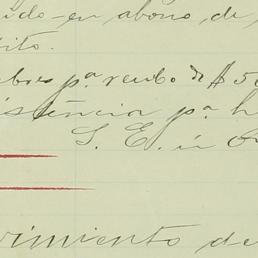 ido en abono de
ito.
bres pª recibo de $50
istencia pª h
S. E. ú O
vimiento de